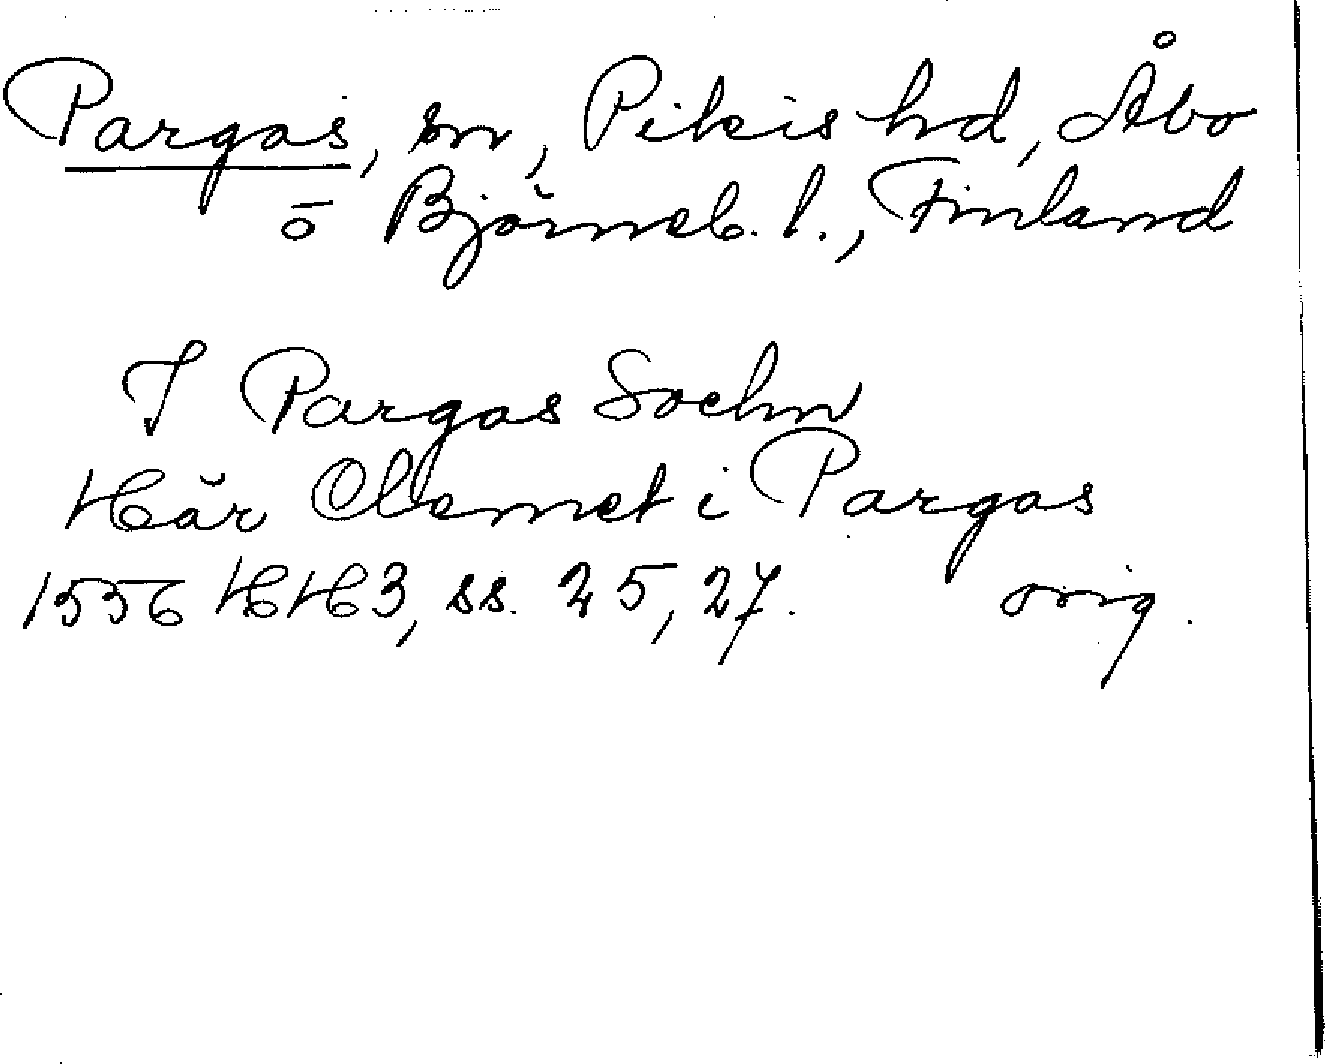 Pargas, sn, Pikis hd, Åbo
o Björneb. l., Finland
I Pargas Sochn
Här Clemet i Pargas
1556 HH3, ss. 25, 27. orig.